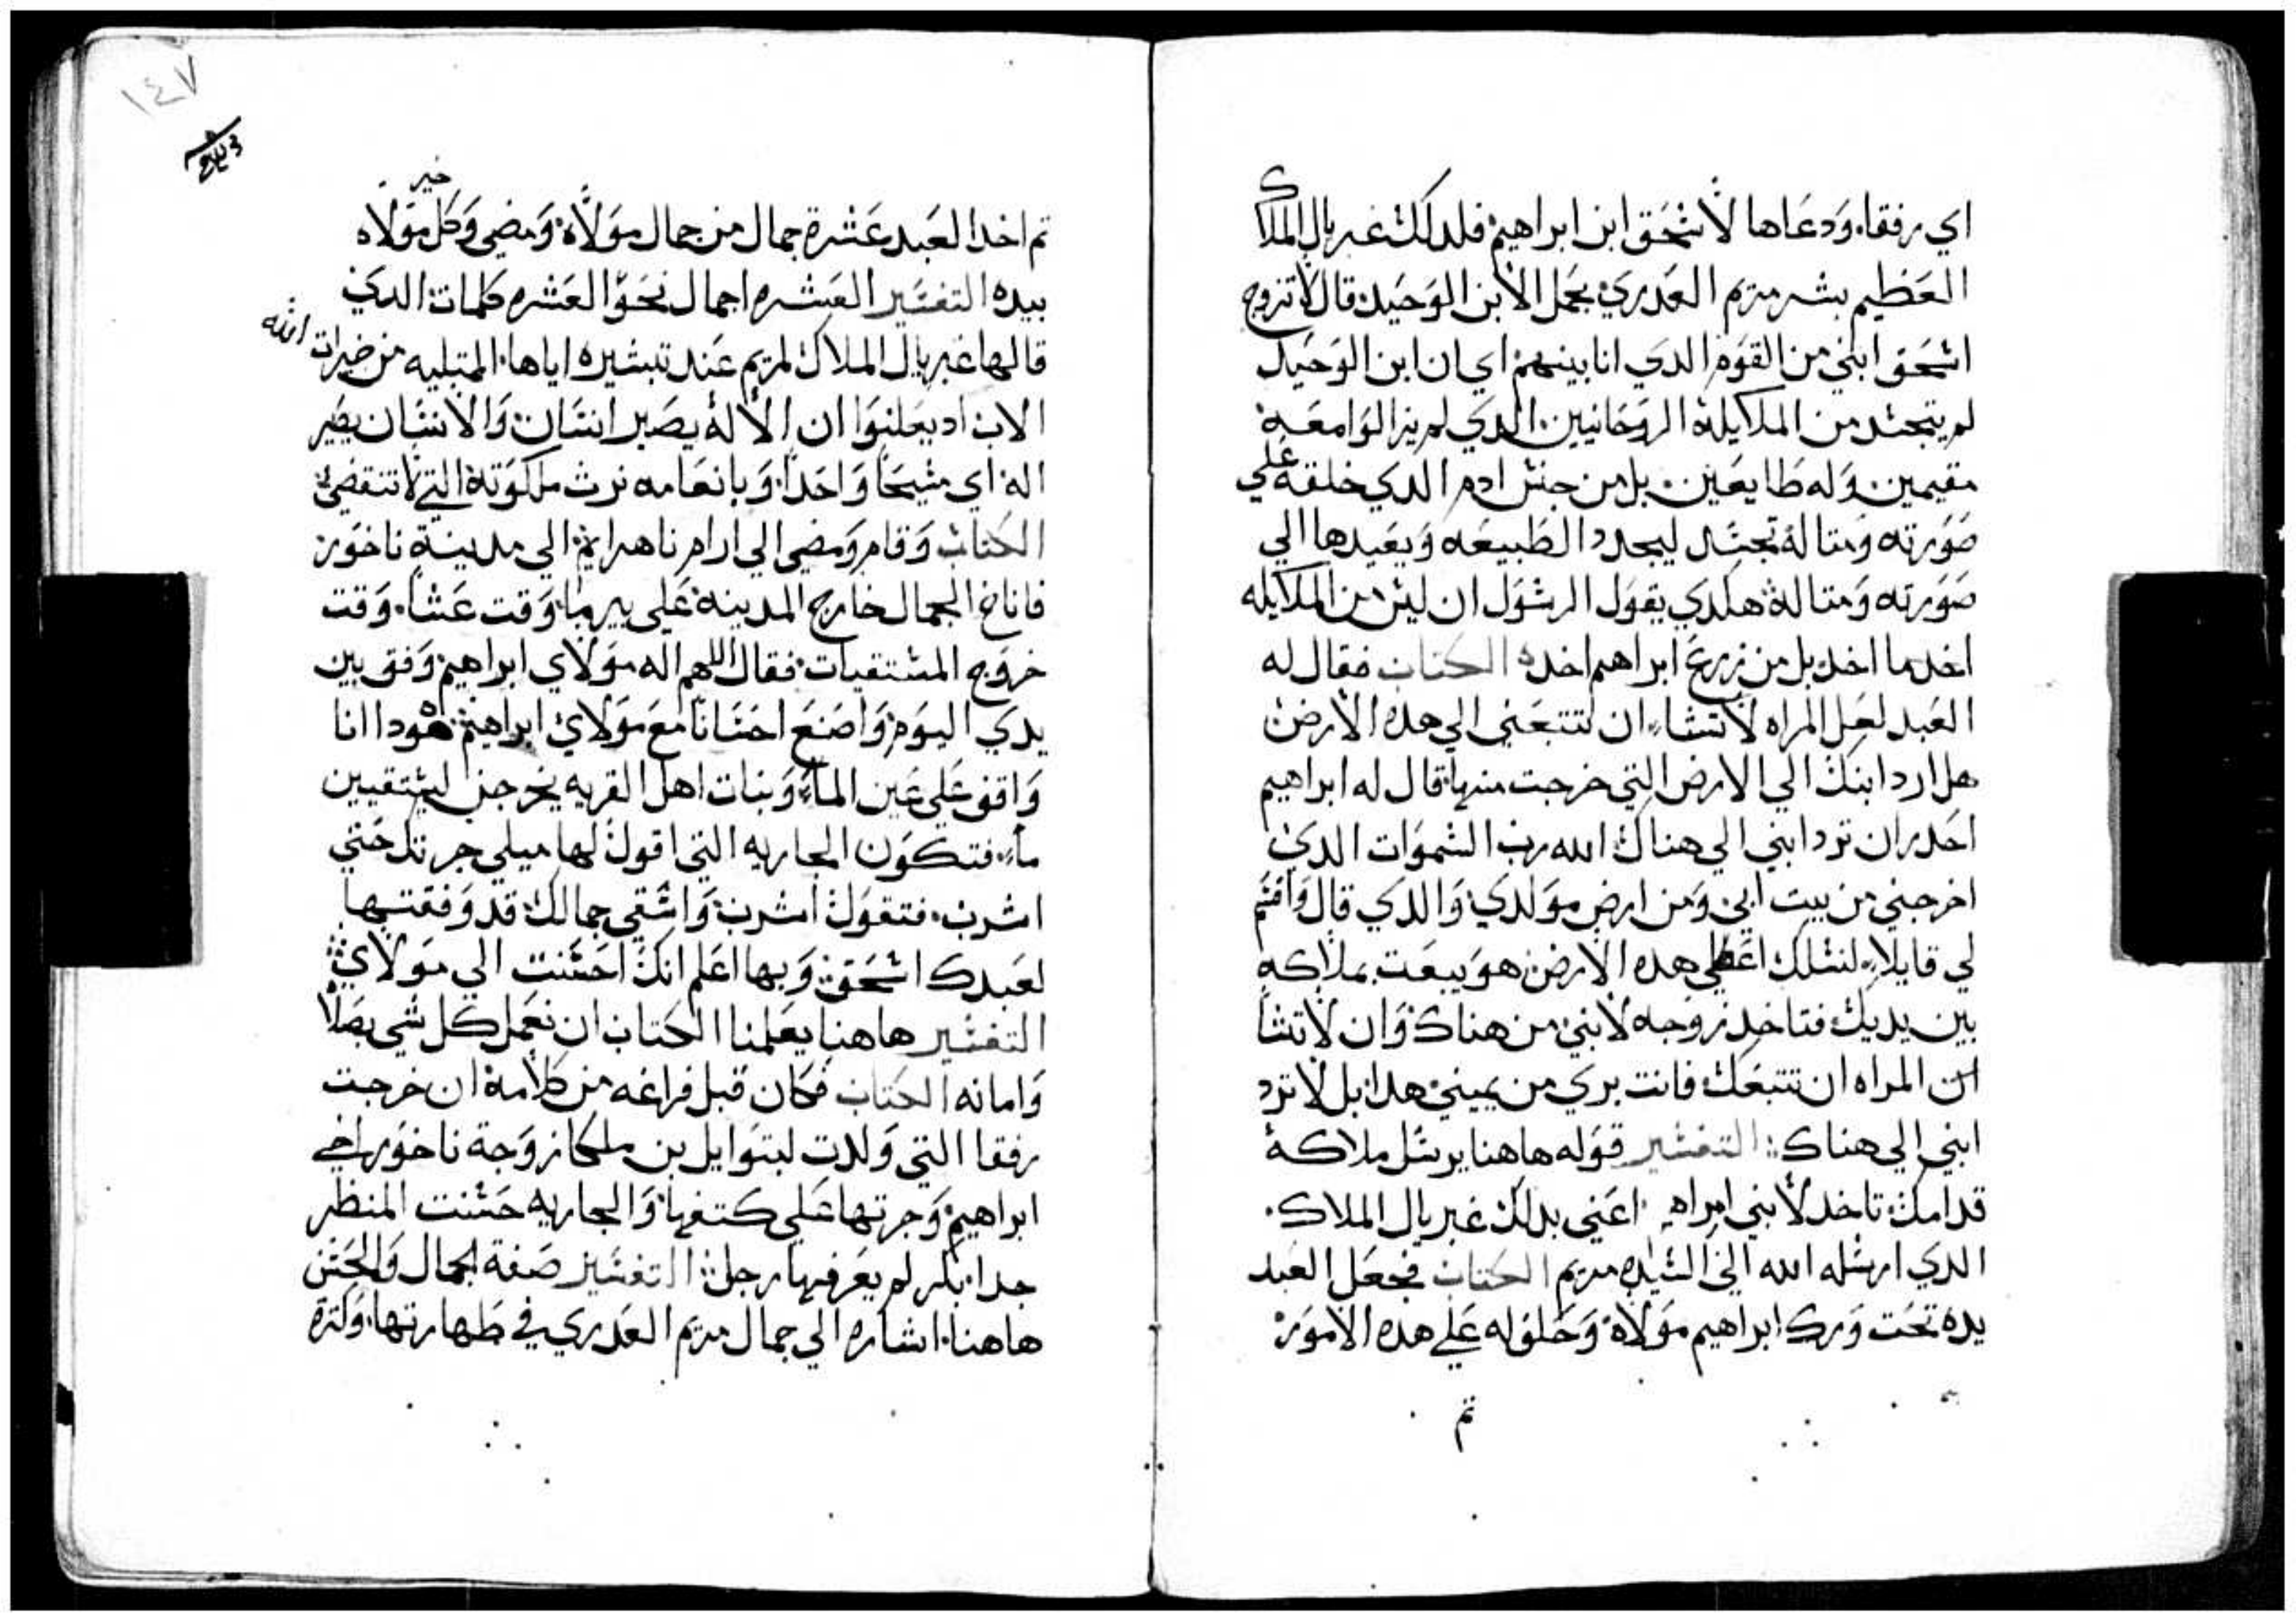 اي رفقا، ودعاها لاسحق ابن ابراهيم فلدلك غبريال الملاك
العظيم بشر مريم العدري بحمل الابن الوحيد قال لا تزوج
اسحق ابني من القوم الدي انا بينهم اي ان ابن الوحيد
لم يتجسد من الملايكة الروحانيين الدي لم يزالوا معه
مقيمين وله طايعين بل من جنس ادم الدي خلقه علي
صورته ومتاله تجسد ليجدد الطبيعه ويعيدها الي
صورته ومتاله هكدي يقول الرسول ان ليس من الملايكه
اخد ما اخد بل من زرع ابراهيم اخده الكتاب فقال له
العبد لعل المراه لا تشاء ان تتبعني الي هده الارض
هل ارد ابنك الي الارض التي خرجت منها قال له ابراهيم
احدر ان ترد ابني الي هناك الله رب السموات الدي
اخرجني من بيت ابي ومن ارض مولدي والدي قال واقسم
لي قايلا لنسلك اعطي هده الارض هو يبعت بملاكه
بين يديك فتاخد زوجه لابني من هناك وان لا تشا
ان المراه ان تتبعك فانت بري من يميني هدا بل لا ترد
ابني الي هناك التفسير قوله هاهنا يرسل ملاكه
قدامك تاخد لابني امراه اعني بدلك غبريال الملاك
الدي ارسله الله الي السيده مريم الكتاب فجعل العبد
يده تحت ورك ابراهيم مولاه وحلف له علي هده الامور
تم
١٤٧
تم اخد العبد عشرة جمال من جمال مولاه ومضي وكل خير مولاه
بيده التفسير العشره اجمال نحو العشره كلمات الدي
قالها غبريال الملاك لمريم عند تبشيره اياها الممتليه من خيرات الله
الاب اد يعلنوا ان الاله يصير انسان والانسان يصير
اله اي مسيحا واحدا وبانعامه نرث ملكوته التي لا تنقضي
الكتاب وقام ومضي الي ارام ناهرايم الي مدينة ناخور
فاناخ الجمال خارج المدينه علي بير ما وقت عشا وقت
خروج المستقيات فقال اللهم اله مولاي ابراهيم وفق بين
يدي اليوم واصنع احسانا مع مولاي ابراهيم هودا انا
واقف علي عين الماء وبنات اهل القريه يخرجن ليستقيين
ماء فتكون الجاريه التي اقول لها ميلي جرتك حتي
اشرب فتقول اشرب واسقي جمالك قد وفقتها
لعبدك اسحق وبها اعلم انك احسنت الي مولاي
التفسير هاهنا يعلمنا الكتاب ان نعمل كل شي بصلاا
وامانه الكتاب فكان قبل فراغه من كلامه ان خرجت
رفقا التي ولدت لبتوايل بن ملكا زوجة ناخور اخي
ابراهيم وجرتها علي كتفها والجاريه حسنت المنظر
جدا بكر لم يعرفها رجل التفسير صفة الجمال والحسن
هاهنا اشاره الي جمال مريم العدري في طهارتها وكترة